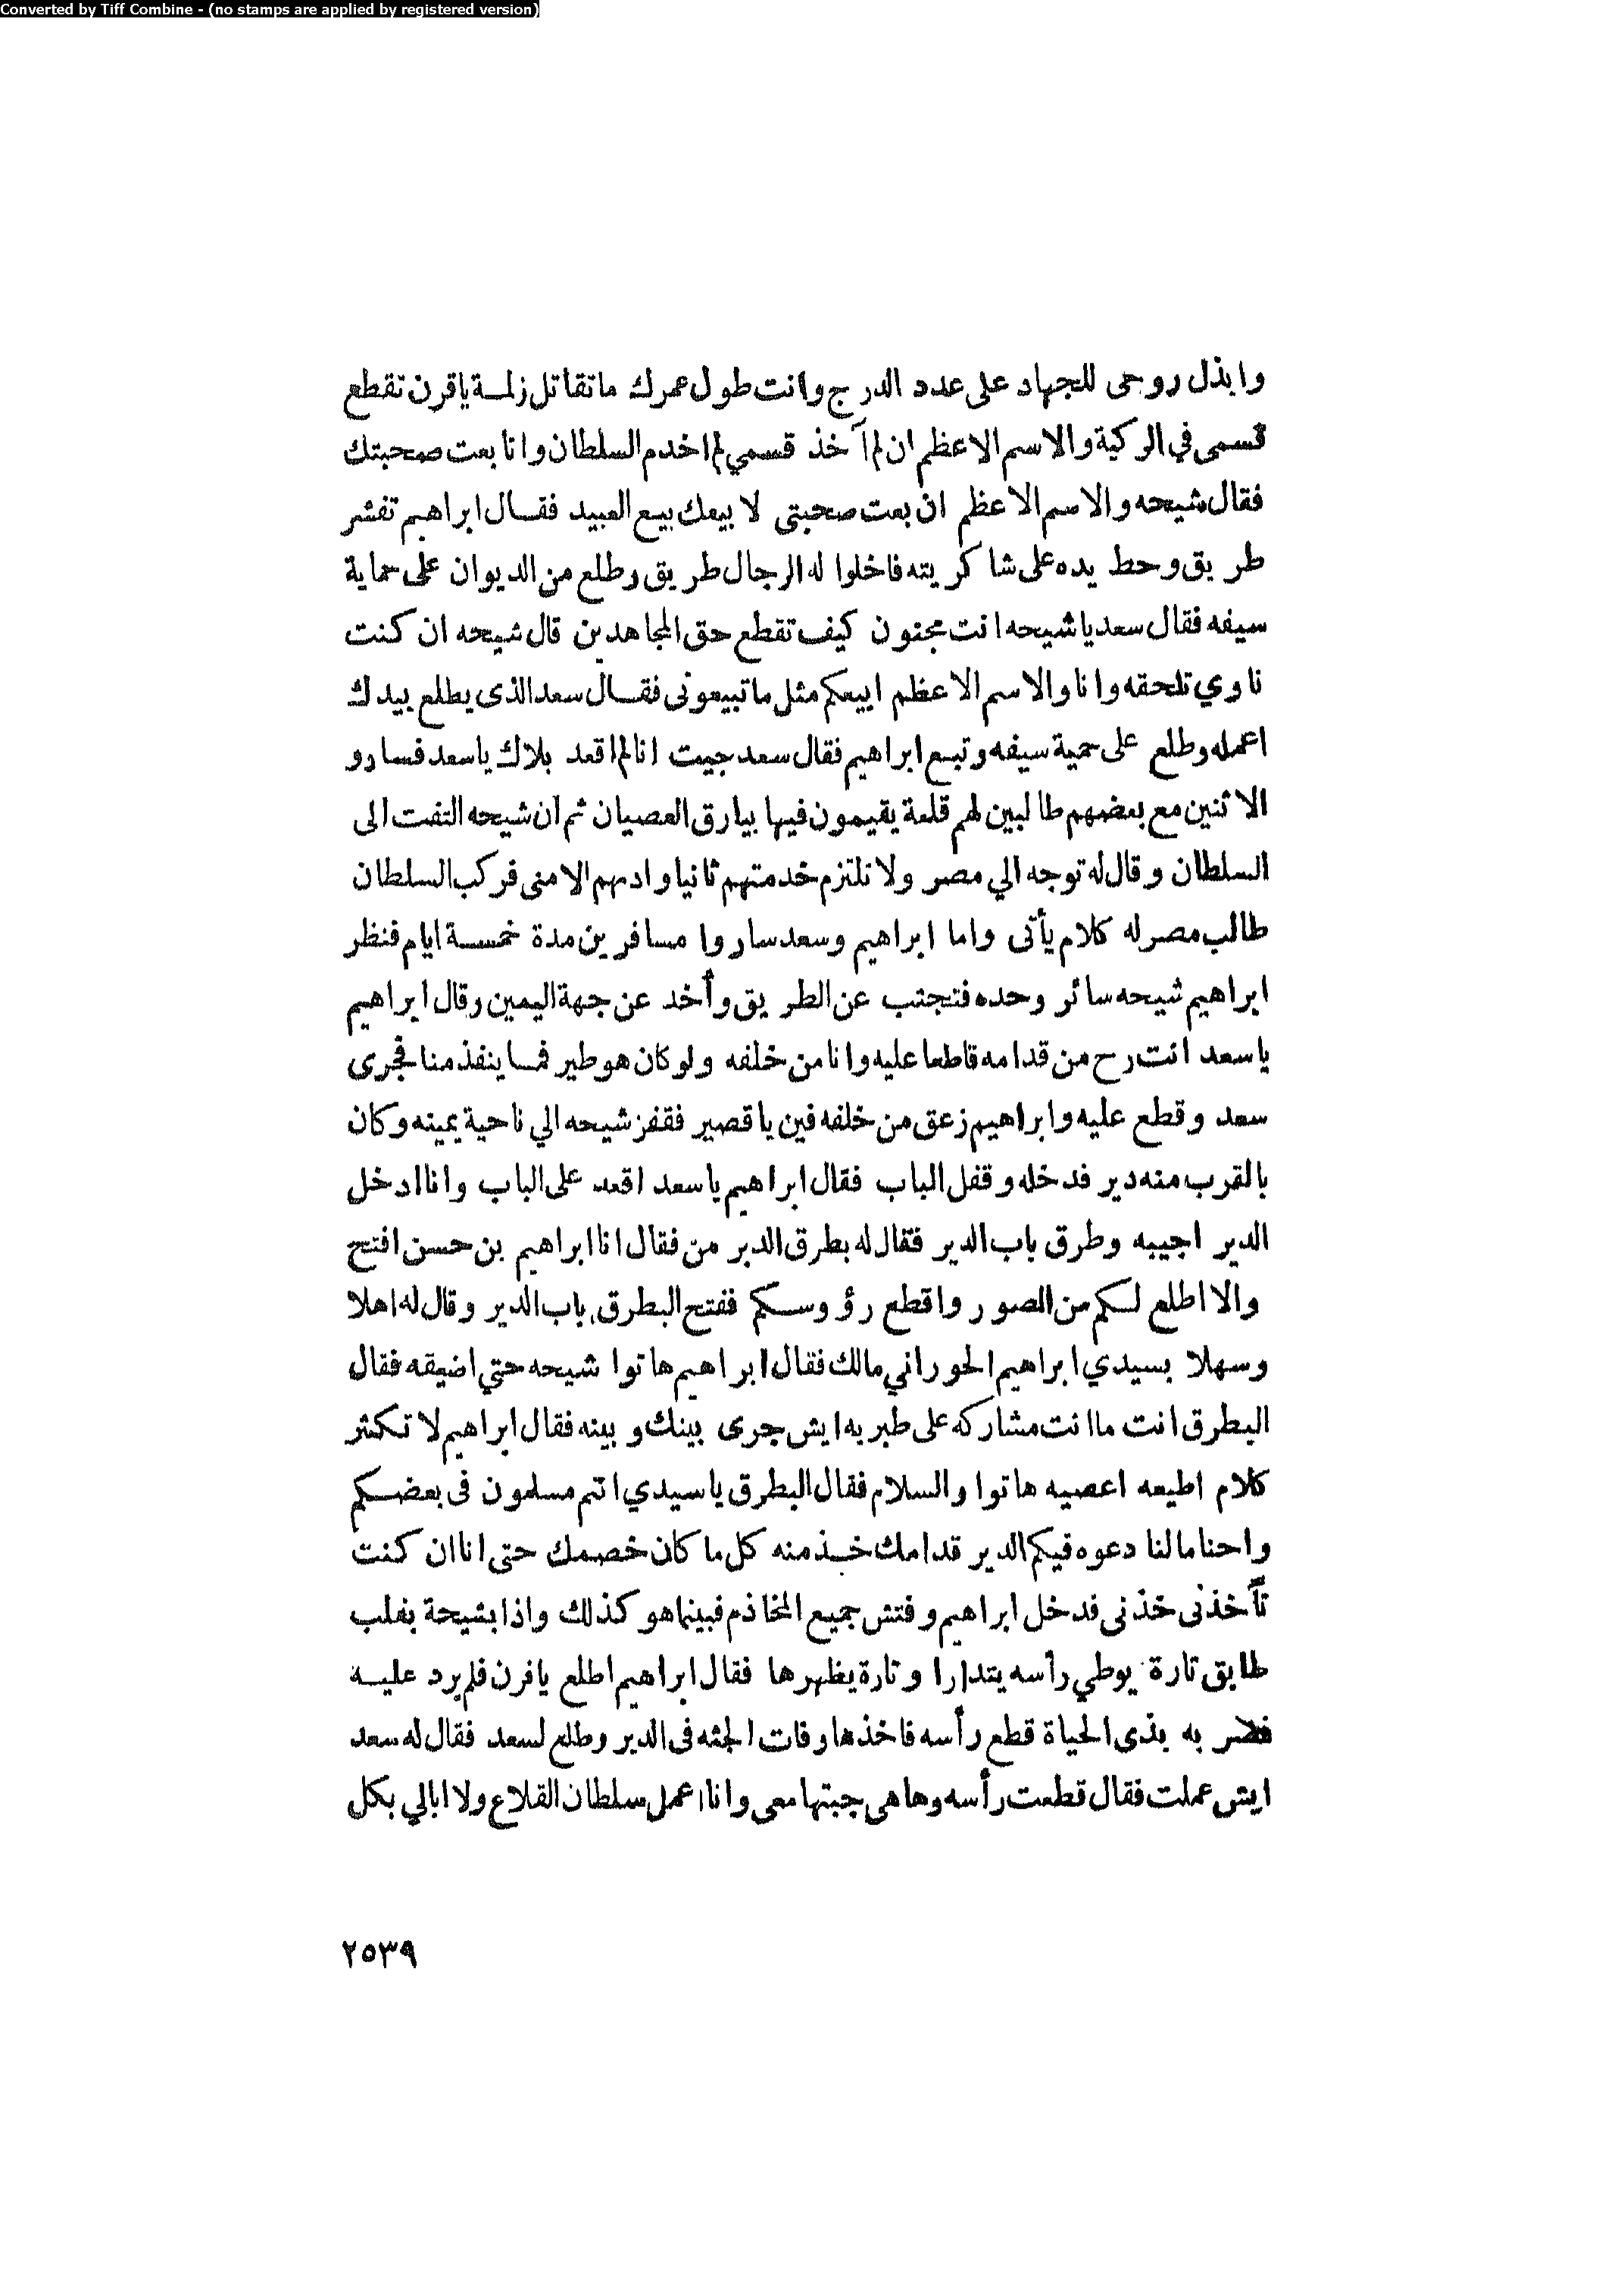 Converted by Tiff Combine - (no stamps are applied by registered version)
وابذل روحى للجهاد على عدد الدرج وانت طول عمرك ماتقاتل زلمة ياقرن تقطع
قسمى في الركبة والاسم الاعظم ان لم آخذ قسمي لم اخدم السلطان وانا بعت صحبتك
فقال شيحه والاسم الاعظم ان بعت صحبتى لا بيعك بيع العبيد فقال ابراهيم تفشر
طريق وحط يده على شاكريته فاخلوا له الرجال طريق وطلع من الديوان على حماية
سيفه فقال سعد ياشيحه انت مجنون كيف تقطع حق المجاهدين قال شيحه ان كنت
ناوي تلحقه وانا والاسم الاعظم ابيعكم مثل ماتبيعونى فقال سعد الذى يطلع بيدك
اعمله وطلع على حمية سيفه وتبع ابراهيم فقال سعد جيت انا لم اقعد بلاك ياسعد فسارو
الاثنين مع بعضهم طالبين لهم قلعة يقيمون فيها بيارق العصيان ثم ان شيحه التفت الى
السلطان وقال له توجه الي مصر ولا نلتزم خدمتهم ثانيا وادبهم الا منى فركب السلطان
طالب مصر له كلام يأتى واما ابراهيم وسعد ساروا مسافرين مدة خمسة ايام فنظر
ابراهيم شيحه سائر وحده فتجنب عن الطريق وأخد عن جهة اليمين وقال ابراهيم
ياسعد انت رح من قدامه قاطعا عليه وانا من خلفه ولو كان هو طير فما ينفذ منا فجرى
سعد وقطع عليه وابراهيم زعق من خلفه فين يا قصير فقفز شيحه الي ناحية يمينه وكان
بالقرب منه دير فدخله وقفل الباب فقال ابراهيم ياسعد اقعد على الباب وانا ادخل
الدير اجيبه وطرق باب الدير فقال له بطرق الدير من فقال انا ابراهيم بن حسن افتح
والا اطلع لكم من الصور واقطع رؤوسكم ففتح البطرق باب الدير وقال له اهلا
وسهلا بسيدي ابراهيم الحوراني مالك فقال ابراهيم هاتوا شيحه حتي اضيقه فقال
البطرق انت ماانت مشاركه على طبريه ايش جرى بينك وبينه فقال ابراهيم لا تكثر
كلام اطيعه اعصيه هاتوا والسلام فقال البطرق ياسيدي انتم مسلمون فى بعضكم
واحنا مالنا دعوه فيكم الدير قدامك خذ منه كل ما كان خصمك حتى انا ان كنت
تأخذنى خذنى فدخل ابراهيم وفتش جميع المخاذم فبينما هو كذلك واذا بشيحة بغلب
طابق تارة يوطي رأسه يتدارا وتارة يظهرها فقال ابراهيم اطلع ياقرن فلم يرد عليه
فضربه بذى الحياة قطع رأسه فاخذها وفات الجثه فى الدير وطلع لسعد فقال له سعد
ايش عملت فقال قطعت رأسه وها هى جبتها معى وانا اعمل سلطان القلاع ولا ابالي بكل
٢٥٣٩